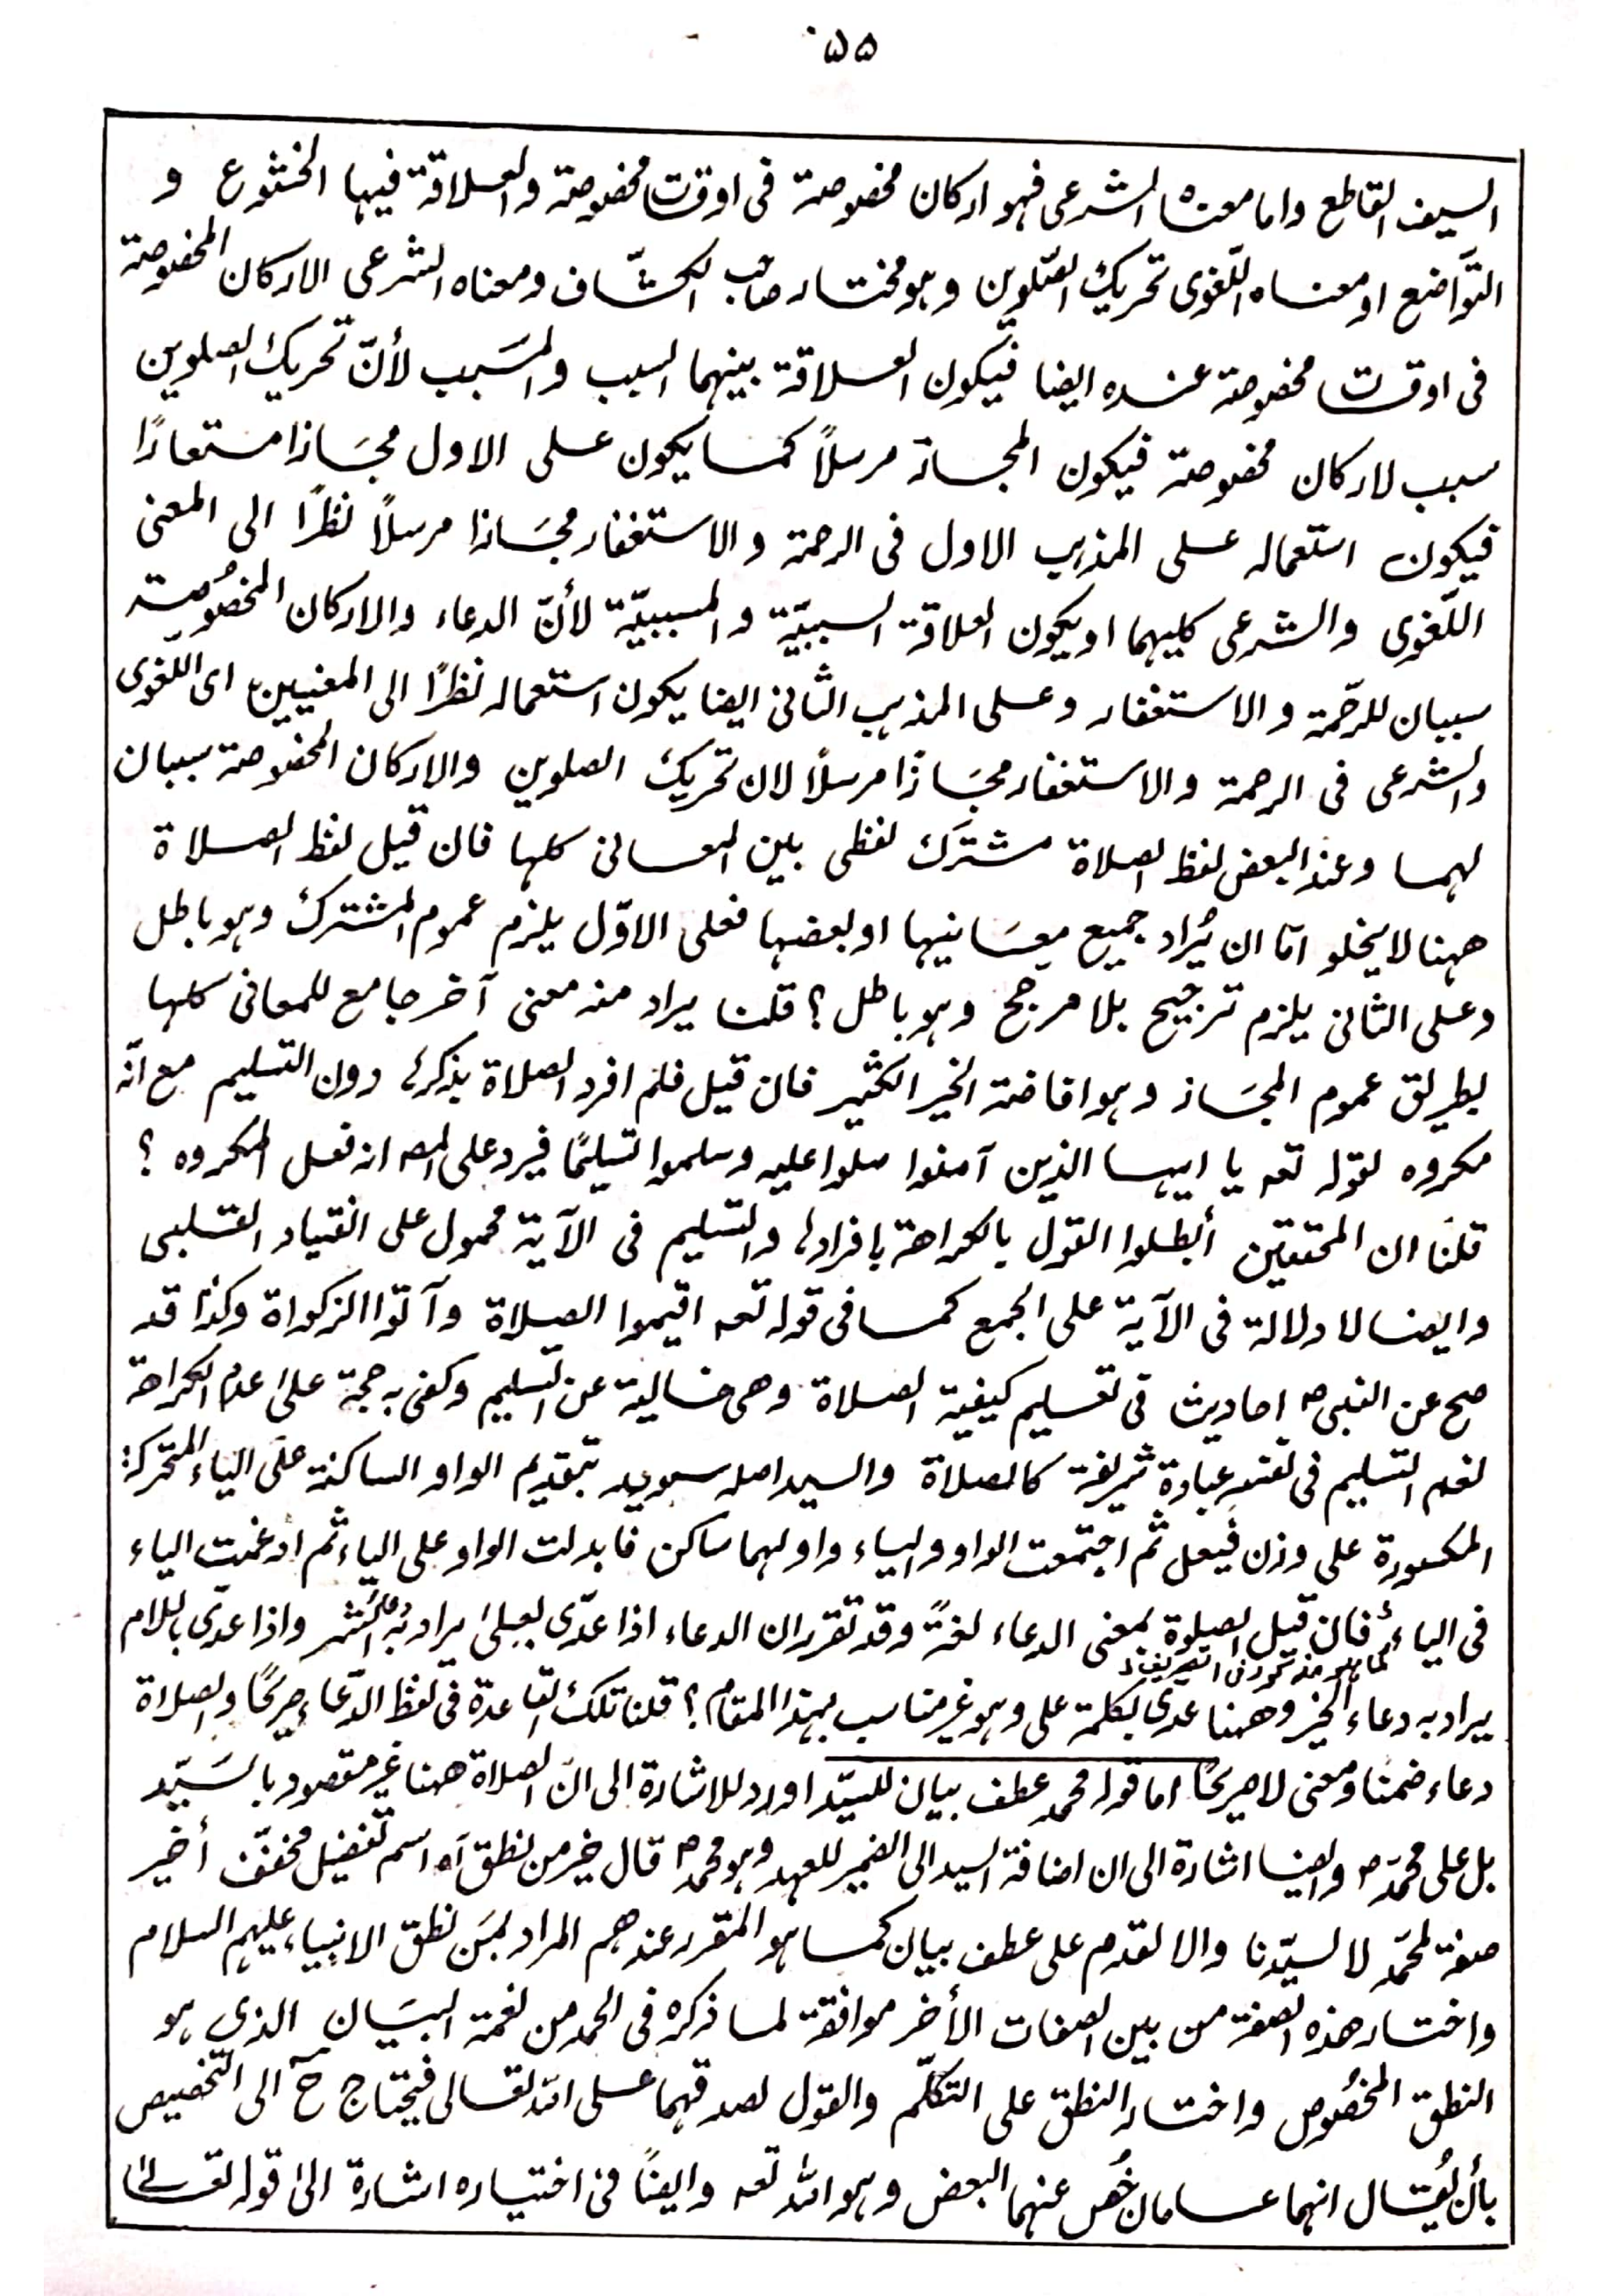 ۵۵
السيف القاطع واما معناه الشرعى فهو اركان مخصوصة فى اوقات مخصوصة والعلاقة فيها الخشوع و
التواضع او معناه اللّغوى تحريك الصّلوين وهو مختار صاحب الكشّاف ومعناه الشرعى الاركان المخصوصة
فى اوقات مخصوصة عنده ايضا فيكون العلاقة بينهما السبب والمسَبب لأنّ تحريك الصلوين
سبب لاركان مخصوصة فيكون المجاز مرسلاً كما يكون على الاول مجَازا مستعارًا
فيكون استعماله على المذهب الاول فى الرحمة والاستغفار مجَازا مرسلاً نظرًا الى المعنى
اللّغوى والشرعى كليهما او يكون العلاقة السببيّة والمسببيّة لأنّ الدعاء والاركان المخصُوصة
سببان للرحّمة والاستغفار وعلى المذهب الثانى ايضا يكون استعماله نظرًا الى المعنيين اى اللغوى
والشرعى فى الرحمة والاستغفار مجَازًا مرسلاً لان تحريك الصلوين والاركان المخصوصة سببان
لهما وعند البعض لفظ الصلاة مشترَك لفظى بين المعانى كلها فان قيل لفظ الصلاة
ههنا لا يخلو امّا ان يُراد جميع معَانيها او بعضها فعلى الاوّل يلزم عموم المشترك وهو باطل
وعلى الثانى يلزم ترجيح بلا مرجح وهو باطل ؟ قلنا يراد منه معنى آخر جامع للمعانى كلها
بطريق عموم المجَاز وهو افاضة الخير الكثير فان قيل فلم افرد الصلاة بذكرها دون التسليم مع انّه
مكروه لقوله تعه يا ايها الذين آمنوا صلوا عليه وسلموا تسليمًا فيرد على المصـ انه فعل المكروه ؟
قلنا ان المحققين أبطلوا القول بالكراهة بافرادها والتسليم فى الآية محمول على انقياد القلبى
وايضا لا دلالة فى الآية على الجمع كما فى قوله تعه اقيموا الصلاة وآتوا الزكواة وكذا قد
صح عن النبى ص احاديث فى تعليم كيفية الصلاة وهى خالية عن التسليم وكفى به حجة على عدم الكراهة
نعم التسليم فى نفسه عبادة شريفة كالصلاة والسيد اصله سيود بتقديم الواو الساكنة على الياء المتحركة
المكسورة على وزن فيعل ثم اجتمعت الواو والياء واولهما ساكن فابدلت الواو على الياء ثم ادغمت الياء
فى الياء كما هو مذكور فى التصريف فان قيل الصلوة بمعنى الدعاء لغةً وقد تقرر ان الدعاء اذا عدّى بعلى يراد به دعاء الشر واذا عدّى باللام
يراد به دعاء الخير وههنا عدى بكلمة على وهو غير مناسب بهذا المقام ؟ قلنا تلك القاعدة فى لفظ الدّعاء صريحًا والصلاة
دعاء ضمنًا ومعنى لا صريحًا اما قوله محمد عطف بيان للسيّد اورد للاشارة الى انّ الصلاة ههنا غير مقصود بالسَيّد
بل على محمّد ص وايضا اشارة الى ان اضافة السيد الى الضمير للعهد وهو محمد ص قال خير من نطق آه اسم تفضيل مخفّف أخير
صفة لمحمّد لا لسيّدنا والا لقدم على عطف بيان كما هو المقرر عندهم المراد بمَن نطق الانبياء عليهم السلام
واختار هذه الصفة من بين الصفات الأخر موافقة لما ذكره فى الحمد من نعمة البيَان الذى هو
النطق المخصُوص واختار النطق على التكلّم والقول لصدقهما على الله تعالى فيحتاج ح الى التخصيص
بأن يُقال انهما عامان خُص عنهما البعض وهو الله تعه وايضًا فى اختياره اشارة الى قوله تعالى